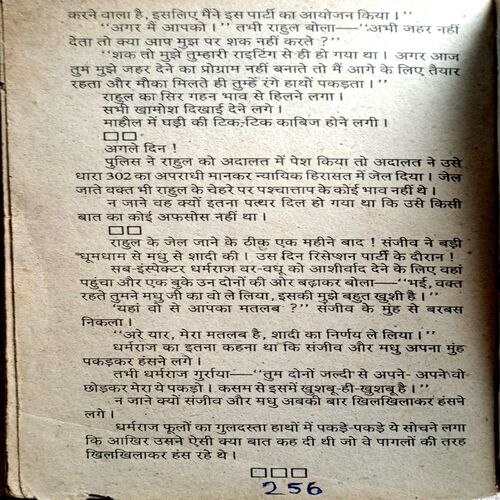 करने वाला है, इसलिए मैंने इस पार्टी का आयोजन किया।''
''अगर मैं आपको।'' तभी राहुल बोला—''अभी जहर नहीं
देता तो क्या आप मुझ पर शक नहीं करते ?''
''शक तो मुझे तुम्हारी राइटिंग से ही हो गया था। अगर आज
तुम मुझे जहर देने का प्रोग्राम नहीं बनाते तो मैं आगे के लिए तैयार
रहता और मौका मिलते ही तुम्हें रंगे हाथों पकड़ता।''
राहुल का सिर गहन भाव से हिलने लगा।
सभी खामोश दिखाई देने लगे।
माहौल में घड़ी की टिक-टिक काबिज होने लगी।
□□
अगले दिन !
पुलिस ने राहुल को अदालत में पेश किया तो अदालत ने उसे
धारा 302 का अपराधी मानकर न्यायिक हिरासत में जेल दिया। जेल
जाते वक्त भी राहुल के चेहरे पर पश्चाताप के कोई भाव नहीं थे।
न जाने वह क्यों इतना पत्थर दिल हो गया था कि उसे किसी
बात का कोई अफसोस नहीं था।
□□
राहुल के जेल जाने के ठीक एक महीने बाद ! संजीव ने बड़ी
धूमधाम से मधु से शादी की। उस दिन रिसेप्शन पार्टी के दौरान !
सब-इंस्पेक्टर धर्मराज वर-वधू को आशीर्वाद देने के लिए वहां
पहुंचा और एक बुके उन दोनों की ओर बढ़ाकर बोला—''भई, वक्त
रहते तुमने मधु जी का वो ले लिया, इसकी मुझे बहुत खुशी है।''
''यहां वो से आपका मतलब ?'' संजीव के मुंह से बरबस
निकला।
''अरे यार, मेरा मतलब है, शादी का निर्णय ले लिया।''
धर्मराज का इतना कहना था कि संजीव और मधु अपना मुंह
पकड़कर हंसने लगे।
तभी धर्मराज गुर्राया—''तुम दोनों जल्दी से अपने- अपने वो
छोड़कर मेरा ये पकड़ो। कसम से इसमें खुशबू-ही-खुशबू है।''
न जाने क्यों संजीव और मधु अबकी बार खिलखिलाकर हंसने
लगे।
धर्मराज फूलों का गुलदस्ता हाथों में पकड़े-पकड़े ये सोचने लगा
कि आखिर उसने ऐसी क्या बात कह दी थी जो वे पागलों की तरह
खिलखिलाकर हंस रहे थे।
□□□
256